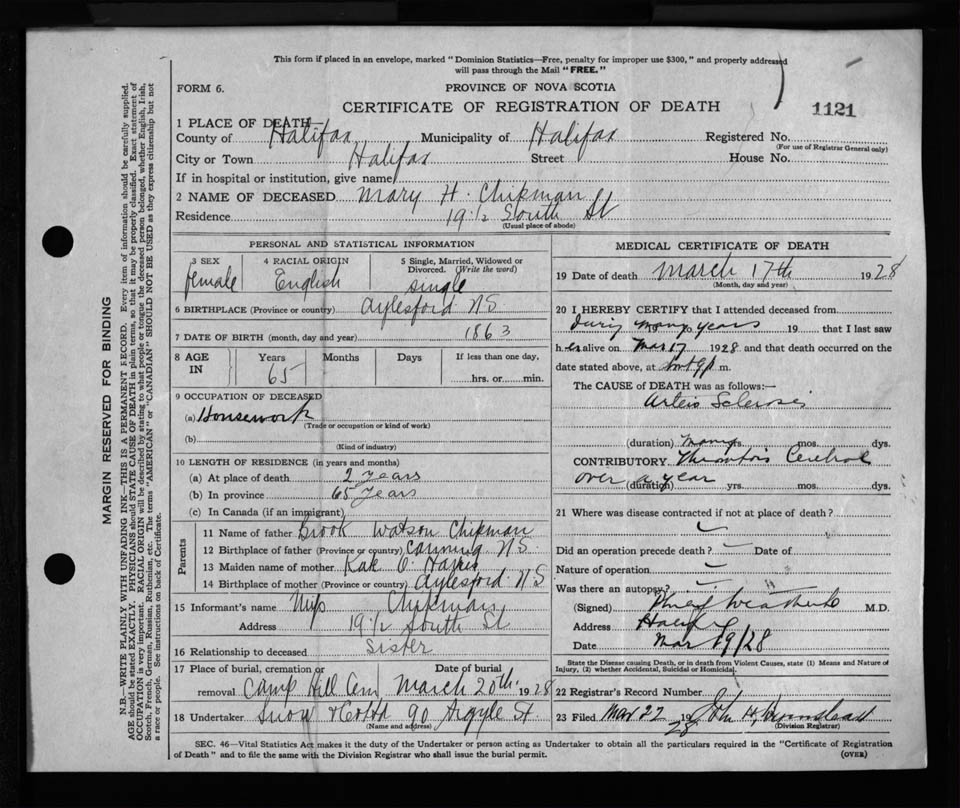 This form if placed in an envelope, marked "Dominion Statistics—Free, penalty for improper use $300," and properly addressed
will pass through the Mail "FREE."
FORM 6.
PROVINCE OF NOVA SCOTIA
CERTIFICATE OF REGISTRATION OF DEATH
1121
1 PLACE OF DEATH
County of Halifax Municipality of Halifax Registered No.
(For use of Registrar General only)
City or Town Halifax Street House No.
If in hospital or institution, give name
2 NAME OF DECEASED Mary H. Chipman
Residence 19 1/2 South St
(Usual place of abode)
PERSONAL AND STATISTICAL INFORMATION
3 SEX 4 RACIAL ORIGIN 5 Single, Married, Widowed or Divorced. (Write the word)
female English single
6 BIRTHPLACE (Province or country) Aylesford N S
7 DATE OF BIRTH (month, day and year) 1863
8 AGE IN Years Months Days If less than one day,
65 hrs. or min.
9 OCCUPATION OF DECEASED
(a) Housework
(Trade or occupation or kind of work)
(b)
(Kind of industry)
10 LENGTH OF RESIDENCE (in years and months)
(a) At place of death 2 years
(b) In province 65 years
(c) In Canada (if an immigrant)
Parents
11 Name of father Brook Watson Chipman
12 Birthplace of father (Province or country) Canning N S
13 Maiden name of mother
14 Birthplace of mother (Province or country) Aylesford N S
15 Informant's name Miss Chipman
Address 19 1/2 South St
16 Relationship to deceased Sister
17 Place of burial, cremation or removal Camp Hill Cem Date of burial March 20th 1928
18 Undertaker Snow & Co Ltd 90 Argyle St.
(Name and address)
MEDICAL CERTIFICATE OF DEATH
19 Date of death March 17th 1928
(Month, day and year)
20 I HEREBY CERTIFY that I attended deceased from
During many years 19 that I last saw
her alive on Mar 17 1928 and that death occurred on the
date stated above, at m.
The CAUSE OF DEATH was as follows:—
Arterio Sclerosis
(duration) many yrs. mos. dys.
CONTRIBUTORY Thrombosis Cerebral
over a year
(duration) yrs. mos. dys.
21 Where was disease contracted if not at place of death?
Did an operation precede death? Date of
Nature of operation
Was there an autopsy?
(Signed) M.D.
Address Halifax
Date Mar 19/28
State the Disease causing Death, or in death from Violent Causes, state (1) Means and Nature of
Injury, (2) whether Accidental, Suicidal or Homicidal.
22 Registrar's Record Number
23 Filed Mar 22 1928 John H.
(Division Registrar)
SEC. 46—Vital Statistics Act makes it the duty of the Undertaker or person acting as Undertaker to obtain all the particulars required in the "Certificate of Registration
of Death" and to file the same with the Division Registrar who shall issue the burial permit.
(OVER)
MARGIN RESERVED FOR BINDING
N.B.—WRITE PLAINLY WITH UNFADING INK—THIS IS A PERMANENT RECORD. Every item of information should be carefully supplied.
AGE should be stated EXACTLY. PHYSICIANS should STATE CAUSE OF DEATH in plain terms, so that it may be properly classified. Exact statement of
OCCUPATION is very important. RACIAL ORIGIN will be described by stating to what people or tongue the deceased person belonged, whether English, Irish,
Scotch, French, German, Russian, Ruthenian, etc. The terms "AMERICAN" or "CANADIAN" SHOULD NOT BE USED as they express citizenship but not
a race or people. See instructions on back of Certificate.